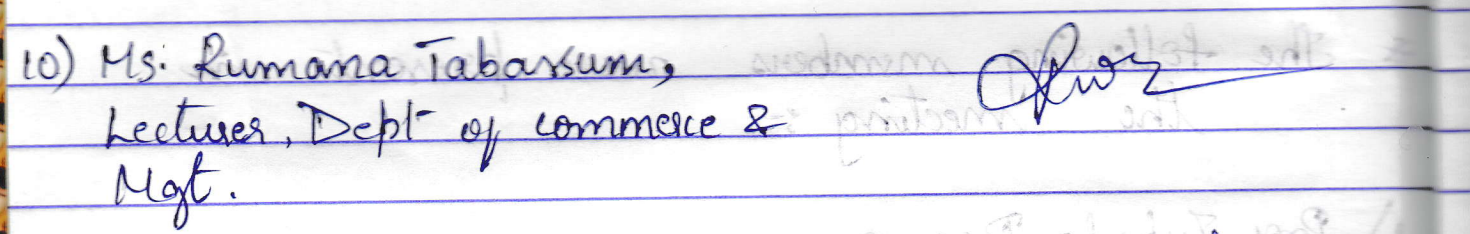 10) Ms. Rumana Tabassum,
Lecturer, Dept of commerce &
Mgt.